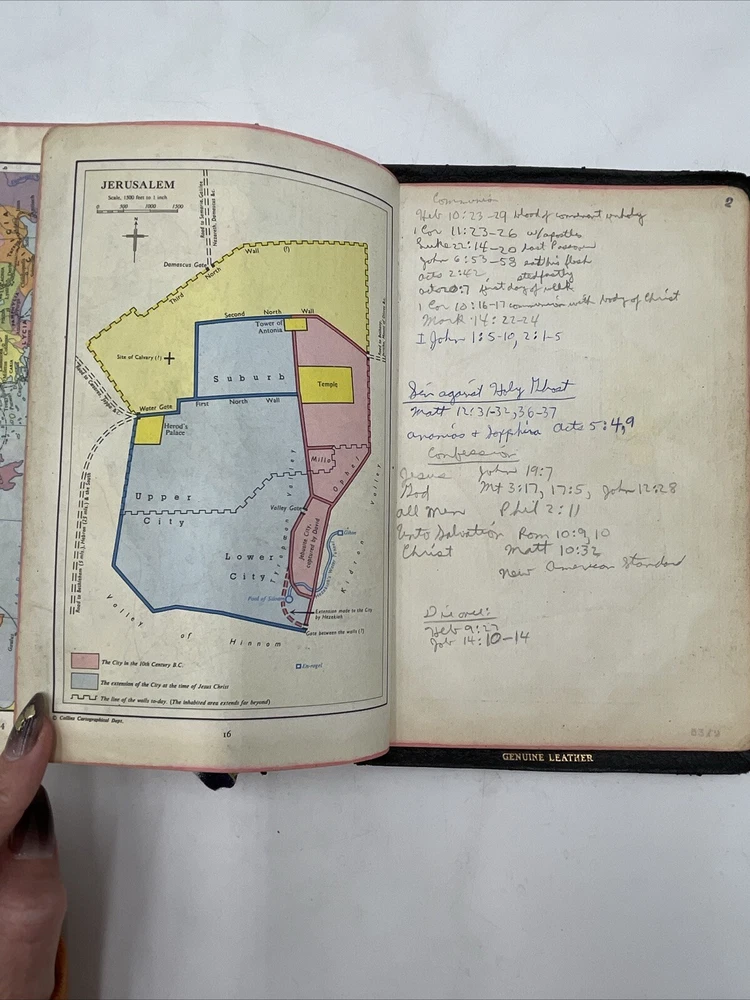 JERUSALEM
Scale, 1500 feet to 1 inch
0 500 1000 1500
N
Damascus Gate
Third North Wall (?)
Second North Wall
Tower of Antonia
Site of Calvary (?)
Suburb
Temple
Water Gate
First North Wall
Herod's Palace
Millo
Ophel
Upper City
Valley Gate
Jebusite City, captured by David
Tyropoeon Valley
Kidron Valley
Gihon
Lower City
Pool of Siloam
Extension made to the City by Hezekiah
Gate between the walls (?)
Valley of Hinnom
En-rogel
The City in the 10th Century B.C.
The extension of the City at the time of Jesus Christ
The line of the walls to-day. (The inhabited area extends far beyond)
© Collins Cartographical Dept.
16
2
Communion
Heb 10:23-29 blood of covenant unholy
1 Cor 11:23-26 w/apostles
Luke 22:14-20 Last Passover
John 6:53-58 eat his flesh
Acts 2:42, stedfastly
Acts 20:7 first day of week
1 Cor 10:16-17 communion with body of Christ
Mark 14:22-24
I John 1:5-10, 2:1-5
Sin against Holy Ghost
Matt 12:31-32, 36-37
Ananias + Sapphira Acts 5:4,9
Confession
Jesus John 19:7
God Mt 3:17, 17:5, John 12:28
all men Phil 2:11
Unto Salvation Rom 10:9,10
Christ Matt 10:32
New American Standard
Die once:
Heb 9:27
Job 14:10-14
GENUINE LEATHER